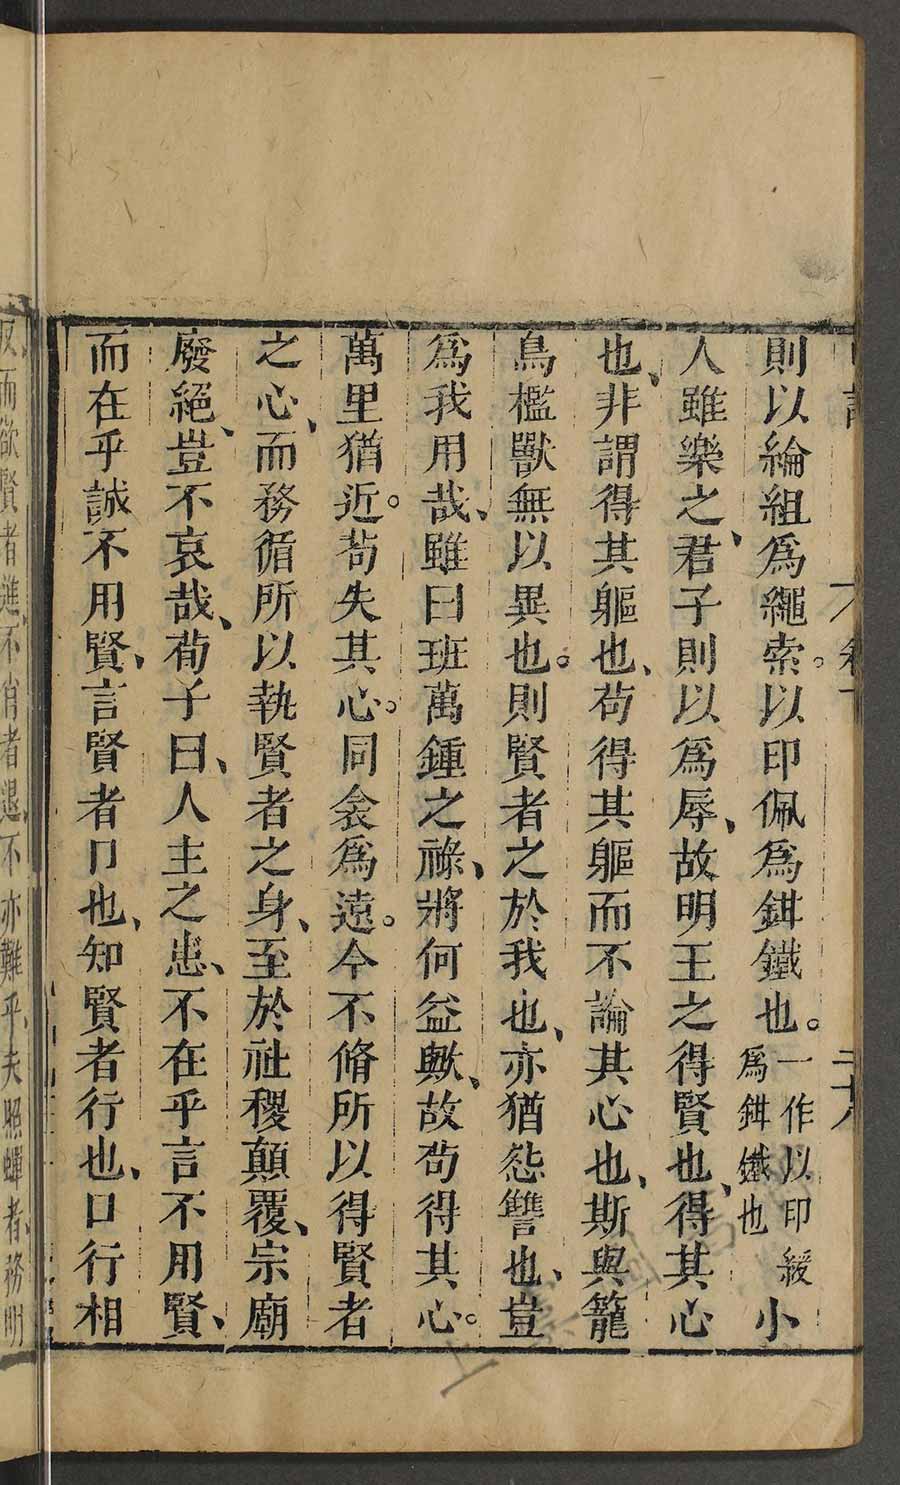 則以綸組爲繩索。以印佩爲鉗鐵也。一作以印綬爲鉗鐵也小
人雖樂之、君子則以爲辱、故明王之得賢也、得其心
也、非謂得其軀也、苟得其軀而不論其心也、斯與籠
鳥檻獸無以異也。則賢者之於我也、亦猶怨讐也、豈
爲我用哉、雖曰班萬鍾之祿、將何益歟、故苟得其心。
萬里猶近。苟失其心。同衾爲遠。今不脩所以得賢者
之心、而務循所以執賢者之身、至於社稷顛覆、宗廟
廢絕、豈不哀哉、荀子曰、人主之患、不在乎言不用賢、
而在乎誠不用賢、言賢者口也、知賢者行也、口行相
反而欲賢者進、不肖者退、不亦難乎、夫照蟬者、務明